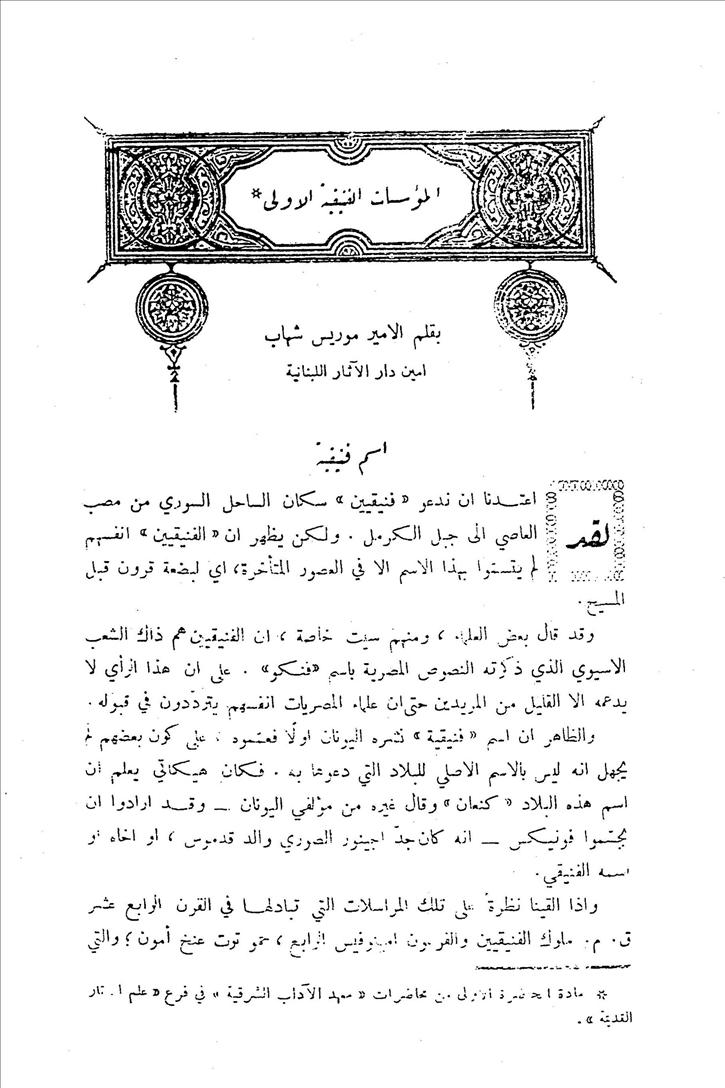 المؤسسات الفنيقية الاولى *
بقلم الامير موريس شهاب
امين دار الآثار اللبنانية
اسم فنيقية
لقد اعتـدنا ان ندعو « فنيقيين » سكان الساحل السوري من مصب
العاصي الى جبل الكرمل . ولكن يظهر ان « الفنيقيين » انفسهم
لم يتسمّوا بهذا الاسم الا في العصور المتأخرة، اي لبضعة قرون قبل
المسيح.
وقد قال بعض العلماء ، ومنهم سيت خاصة ، ان الفنيقيين هم ذاك الشعب
الاسيوي الذي ذكرته النصوص المصرية باسم «فنكو» . على ان هذا الرأي لا
يدعمه الا القليل من المريدين حتى ان علماء المصريات انفسهم يتردّدون في قبوله.
والظاهر ان اسم « فنيقية » نشره اليونان اولًا فعمّموه ، على كون بعضهم لم
يجهل انه ليس بالاسم الاصلي للبلاد التي دعوها به . فكان هيكاتي يعلم ان
اسم هذه البلاد « كنعان » وقال غيره من مؤلفي اليونان ــ وقــد ارادوا ان
يجسّموا فونيكس ــ انه كان جدّ اجينور الصوري والد قدموس ، او اخاه او
اسمه الفنيقي.
واذا القينا نظرةً على تلك المراسلات التي تبادلهـا في القرن الرابع عشر
ق . م . ملوك الفنيقيين والفرعون امينوفيس الرابع ، حمو توت عنخ أمون ؛ والتي
* مادة المحاضرة الاولى من محاضرات « معهد الآداب الشرقية » في فرع « علم الآثار
القديمة ».